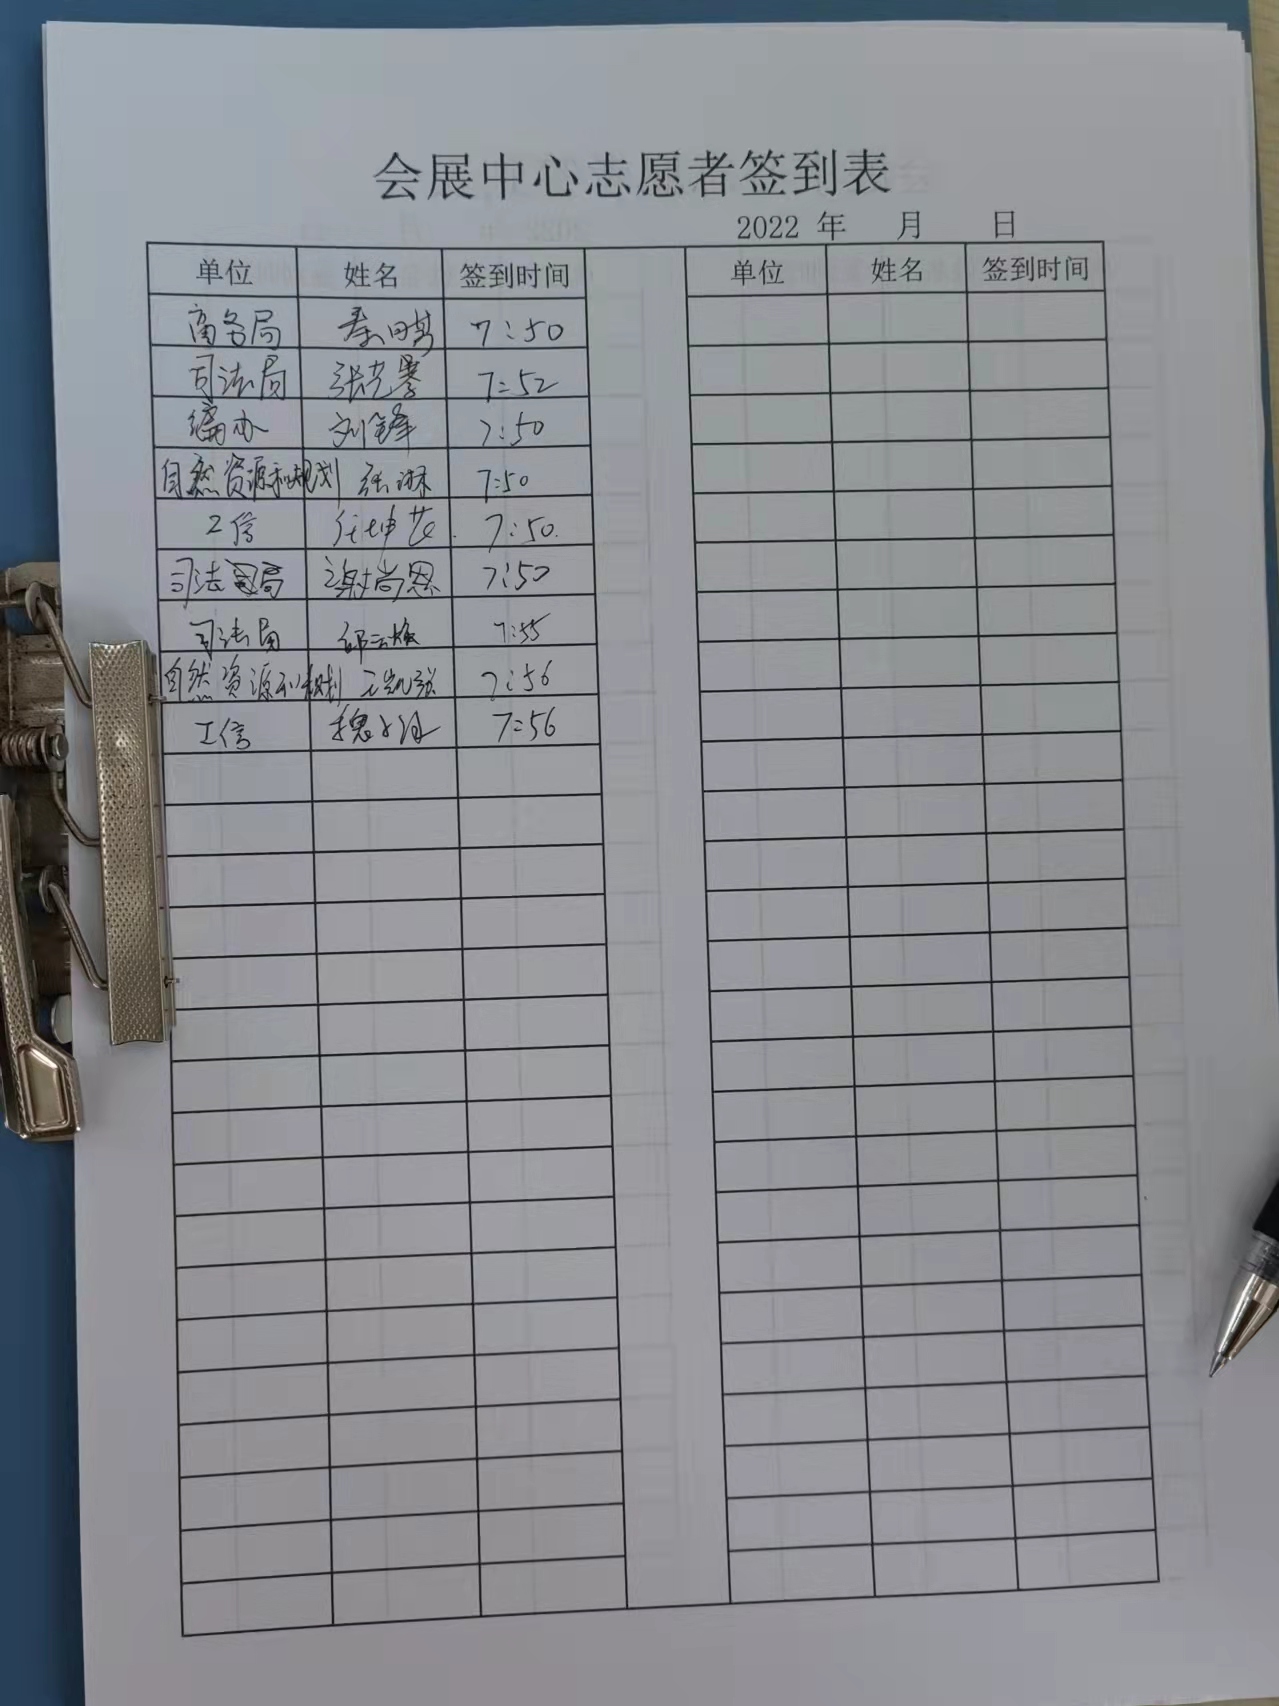 会展中心志愿者签到表
2022 年 月 日
单位 姓名 签到时间 单位 姓名 签到时间
商务局 秦 7:50
司法局 张 7:52
编办 刘锋 7:50
自然资源和规划 张琳 7:50
工信 任坤 7:50.
司法局 谢尚恩 7:50
司法局 邱云 7:55
自然资源和规划 王凯 7:56
工信 魏 7:56